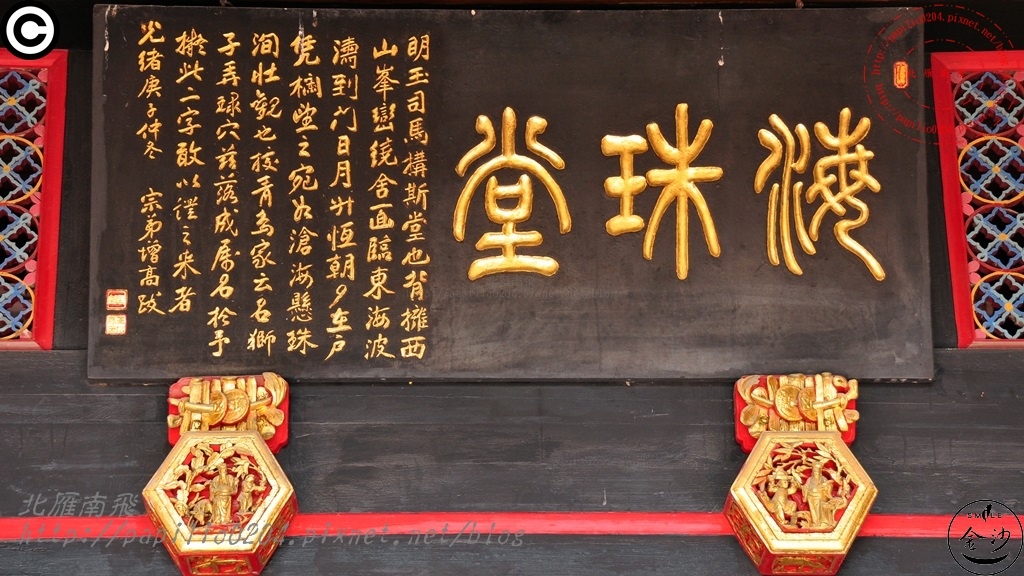 海珠堂
明玉司馬構斯堂也背擁西
山峯巒繞舍面臨東海波
濤到門日月升恆朝夕在戶
凭欄望之宛如滄海懸珠
洵壯觀也挍青烏家云名獅
子弄球穴茲落成屬名於予
擬此二字敢以禮之來者
光緒庚子仲冬 宗弟增高跋
北雁南飛
http://papilio0204.pixnet.net/blog
SMILE
金沙